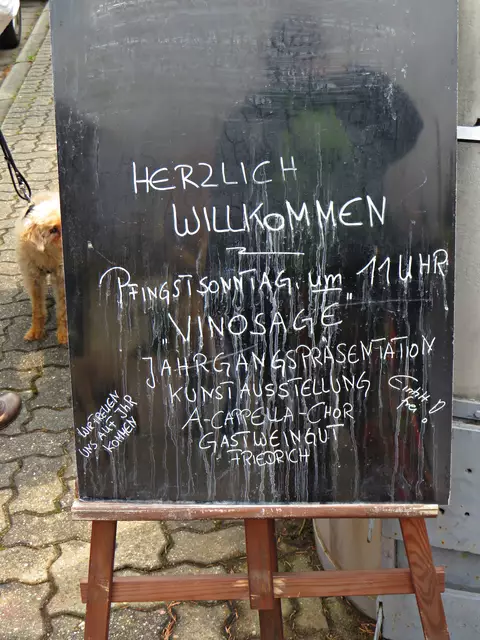 HERZLICH
WILLKOMMEN
PFINGSTSONNTAG um 11 UHR
"VINOSAGE"
JAHRGANGSPRÄSENTATION
KUNSTAUSSTELLUNG
A-CAPPELLA-CHOR
GASTWEINGUT
FRIEDRICH
WIR FREUEN
UNS AUF IHR
KOMMEN
Eintritt
frei!